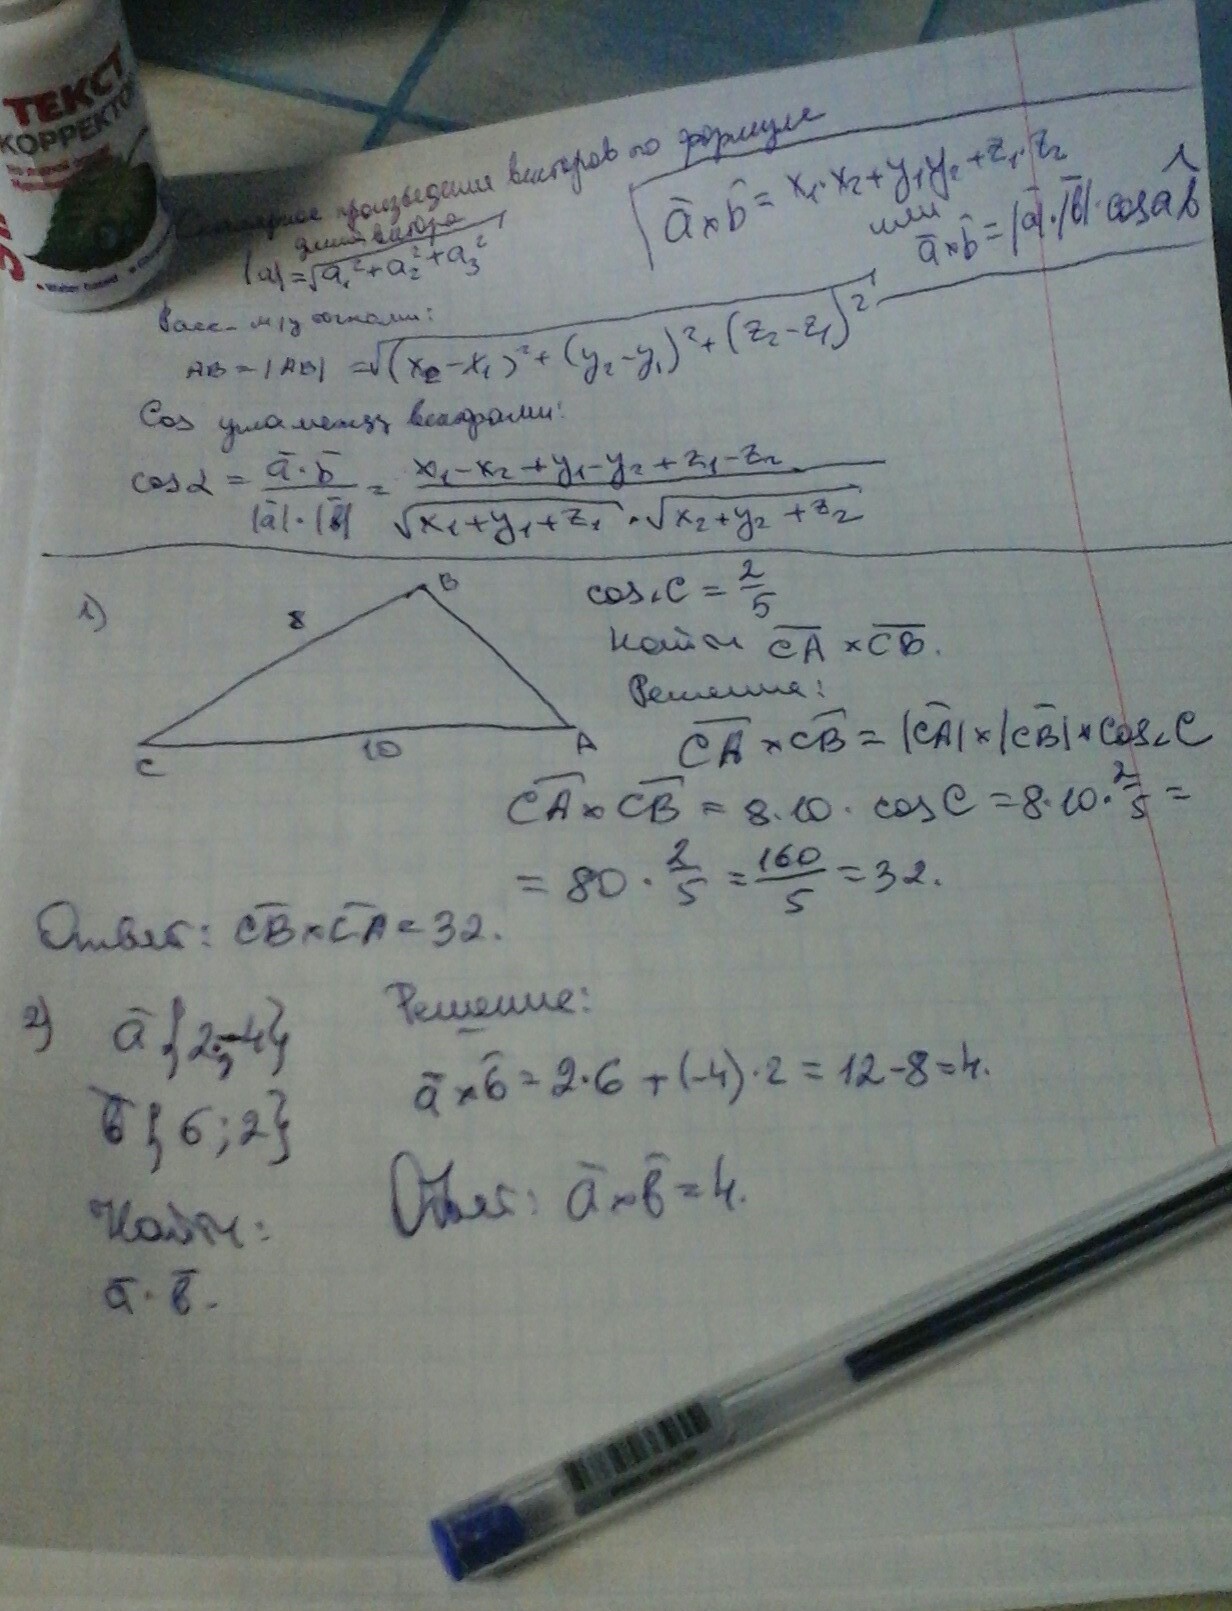 ТЕКСТ
КОРРЕКТО
Скалярное произведения векторов по формуле
a̅×b̅ = x₁·x₂+y₁y₂+z₁·z₂
или
a̅×b̅ = |a̅|·|b̅|·cos a͡b
длина вектора
|a| = √a₁²+a₂²+a₃²
Расс-м/у точками:
AB = |AB| = √(x₂-x₁)²+(y₂-y₁)²+(z₂-z₁)²
Cos угла между векторами:
cosα = a̅·b̅ / |a̅|·|b̅| = x₁-x₂+y₁-y₂+z₁-z₂ / √x₁+y₁+z₁ · √x₂+y₂+z₂
1)
B
8
C
10
A
cos∠C = 2/5
Найти C̅A̅ × C̅B̅.
Решение:
C̅A̅ × C̅B̅ = |C̅A̅| × |C̅B̅| × cos∠C
C̅A̅ × C̅B̅ = 8·10·cosC = 8·10·2/5 =
= 80·2/5 = 160/5 = 32.
Ответ: C̅B̅ × C̅A̅ = 32.
2) a̅{2;-4}
b̅{6;2}
Найти:
a̅·b̅.
Решение:
a̅×b̅ = 2·6+(-4)·2 = 12-8=4.
Ответ: a̅×b̅ = 4.